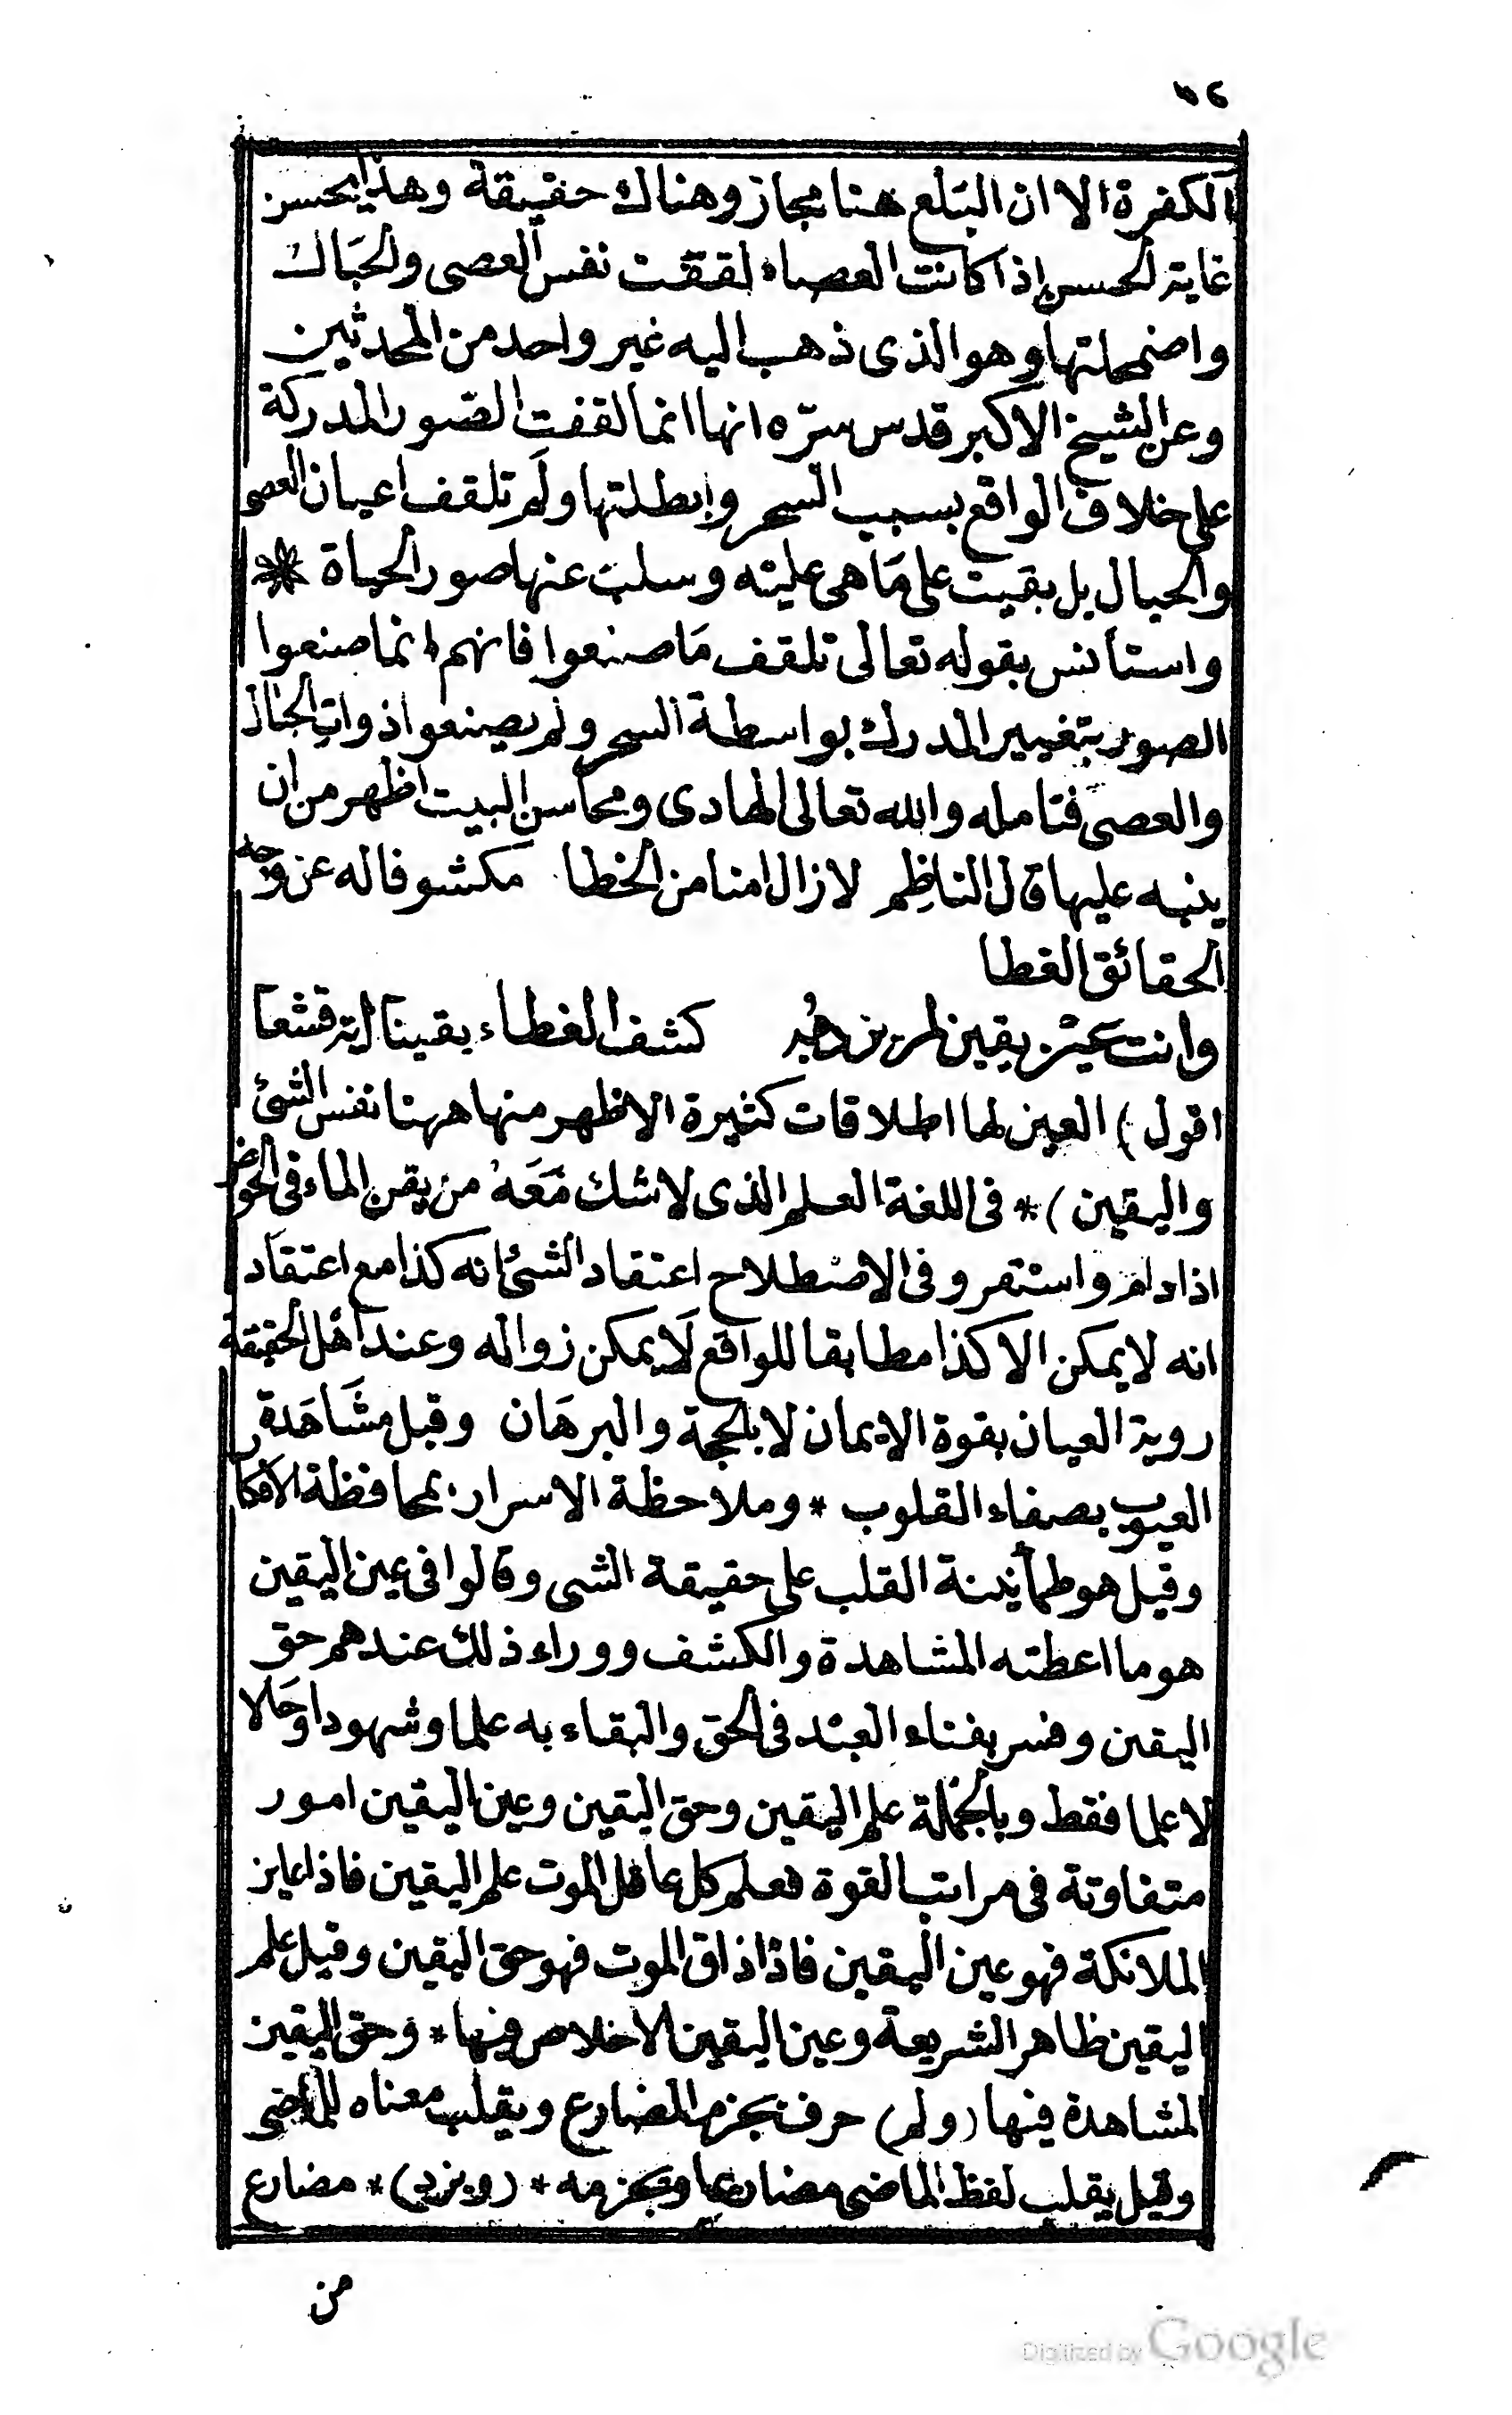 الكفرة الا ان البلع هنا مجاز وهناك حقيقة وهذا يحسن
غاية الحسن اذا كانت العصاء لقفت نفس العصى والحبال
واضمحلتها وهو الذى ذهب اليه غير واحد من المحدثين
وعن الشيخ الاكبر قدس سرّه انها انما لقفت الصّور المدركة
على خلاف الواقع بسبب السحر وابطلتها ولَم تلقف اعيان العصى
والحبال بل بقيت على مَا هى عليْه وسلبت عنها صور الحياة *
واستأنس بقوله تعالى تلقف مَا صنعوا فانهم انما صنعوا
الصور بتغيير المدرك بواسطة السحر ولم يصنعوا ذوات الحبال
والعصى فتامله والله تعالى الهادى ومحاسن البيت اظهر من ان
ينبه عليها قال الناظِم لازال امنا من الخطا مكشوفا له عن وجه
الحقائق الغطا
وانت عَيْن يقين لم يزده بهِ كشف الغطاء يقينا اية قشعا
اقول) العين لها اطلاقات كثيرة الاظهر منها ههنا نفس الشئ
واليقين) * فى اللغة العلم الذى لا شك مَعَهُ من يقن الماء فى الحوض
اذا دام واستقر وفى الاصْطلاح اعتقاد الشئ انه كذا مع اعتقاد
انه لا يمكن الا كذا مطابقا للواقع لَا يمكن زواله وعند اهْل الحقيقة
روية العيان بقوة الايمان لا بالحجة والبرهَان وقيل مشَاهَدة
الغيوب بصفاء القلوب * وملاحظة الاسرار بمحافظة الافكار
وقيل هو طمأنينة القلب على حقيقة الشى وقالوا فى عين اليقين
هو ما اعطته المشاهدة والكشف ووراء ذلك عندهم حق
اليقين وفسر بفناء العبْد فى الحق والبقاء به علما وشهودا وحَالا
لا علما فقط وبالجُملة علم اليقين وحق اليقين وعين اليقين امور
متفاوتة فى مراتب القوة فعلم كل عاقل الموت علم اليقين فاذا عاين
الملائكة فهو عين اليقين فاذا ذاق الموت فهو حق اليقين وقيل علم
اليقين ظاهر الشريعة وعين اليقين الاخلاص فيها * وحق اليقين
المشاهدة فيها (ولم) حرف يجزم المضارع ويقلب معناه للماضى
وقيل يقلب لفظ الماضى مضارعا ويجزمه * (ويزد) * مضارع
من
Digitized by Google